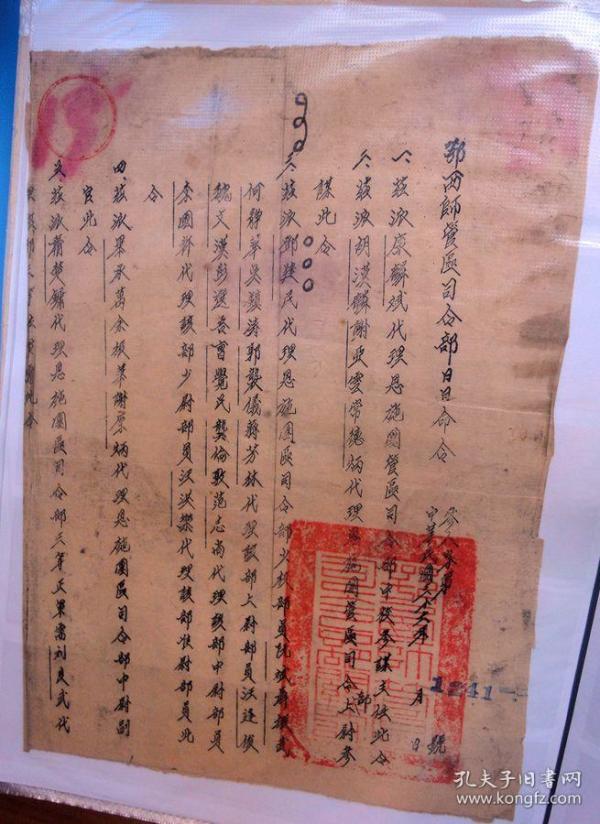 鄂西師管區司令部日日命令
參人字第
1241
號
中華民國三六年 月 日
一、茲派 代理恩施團管區司令部中校參謀主任此令
二、茲派胡漢麟謝亞雲常德炳代理恩施團管區司令部上尉參
謀此令
三、茲派鄧 民代理恩施團區司令部少校部員阮斌
何靜華吳 濤郭襲儀蔣芳林代理該部上尉部員汪達俊
魏文漢彭選 曹覺民龔倫敦范志尚代理該部中尉部員
李國幹代理該部少尉部員汪洪樂代理該部准尉部員此
令
四、茲派畢承萬余振華謝 炳代理恩施團區司令部中尉副
官此令
五、茲派蕭楚鏞代理恩施團區司令部三等正軍需刘良武代
孔夫子旧书网
www.kongfz.com